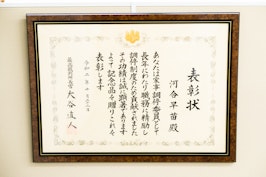 表彰状
河合早苗殿
あなたは家事調停委員として
長年にわたり職務に精励し
調停制度のため貢献されました
その功績は誠に顕著であります
よって記念品を贈りこれを
表彰します
令和三年十月
最高裁判所長官 大谷直人